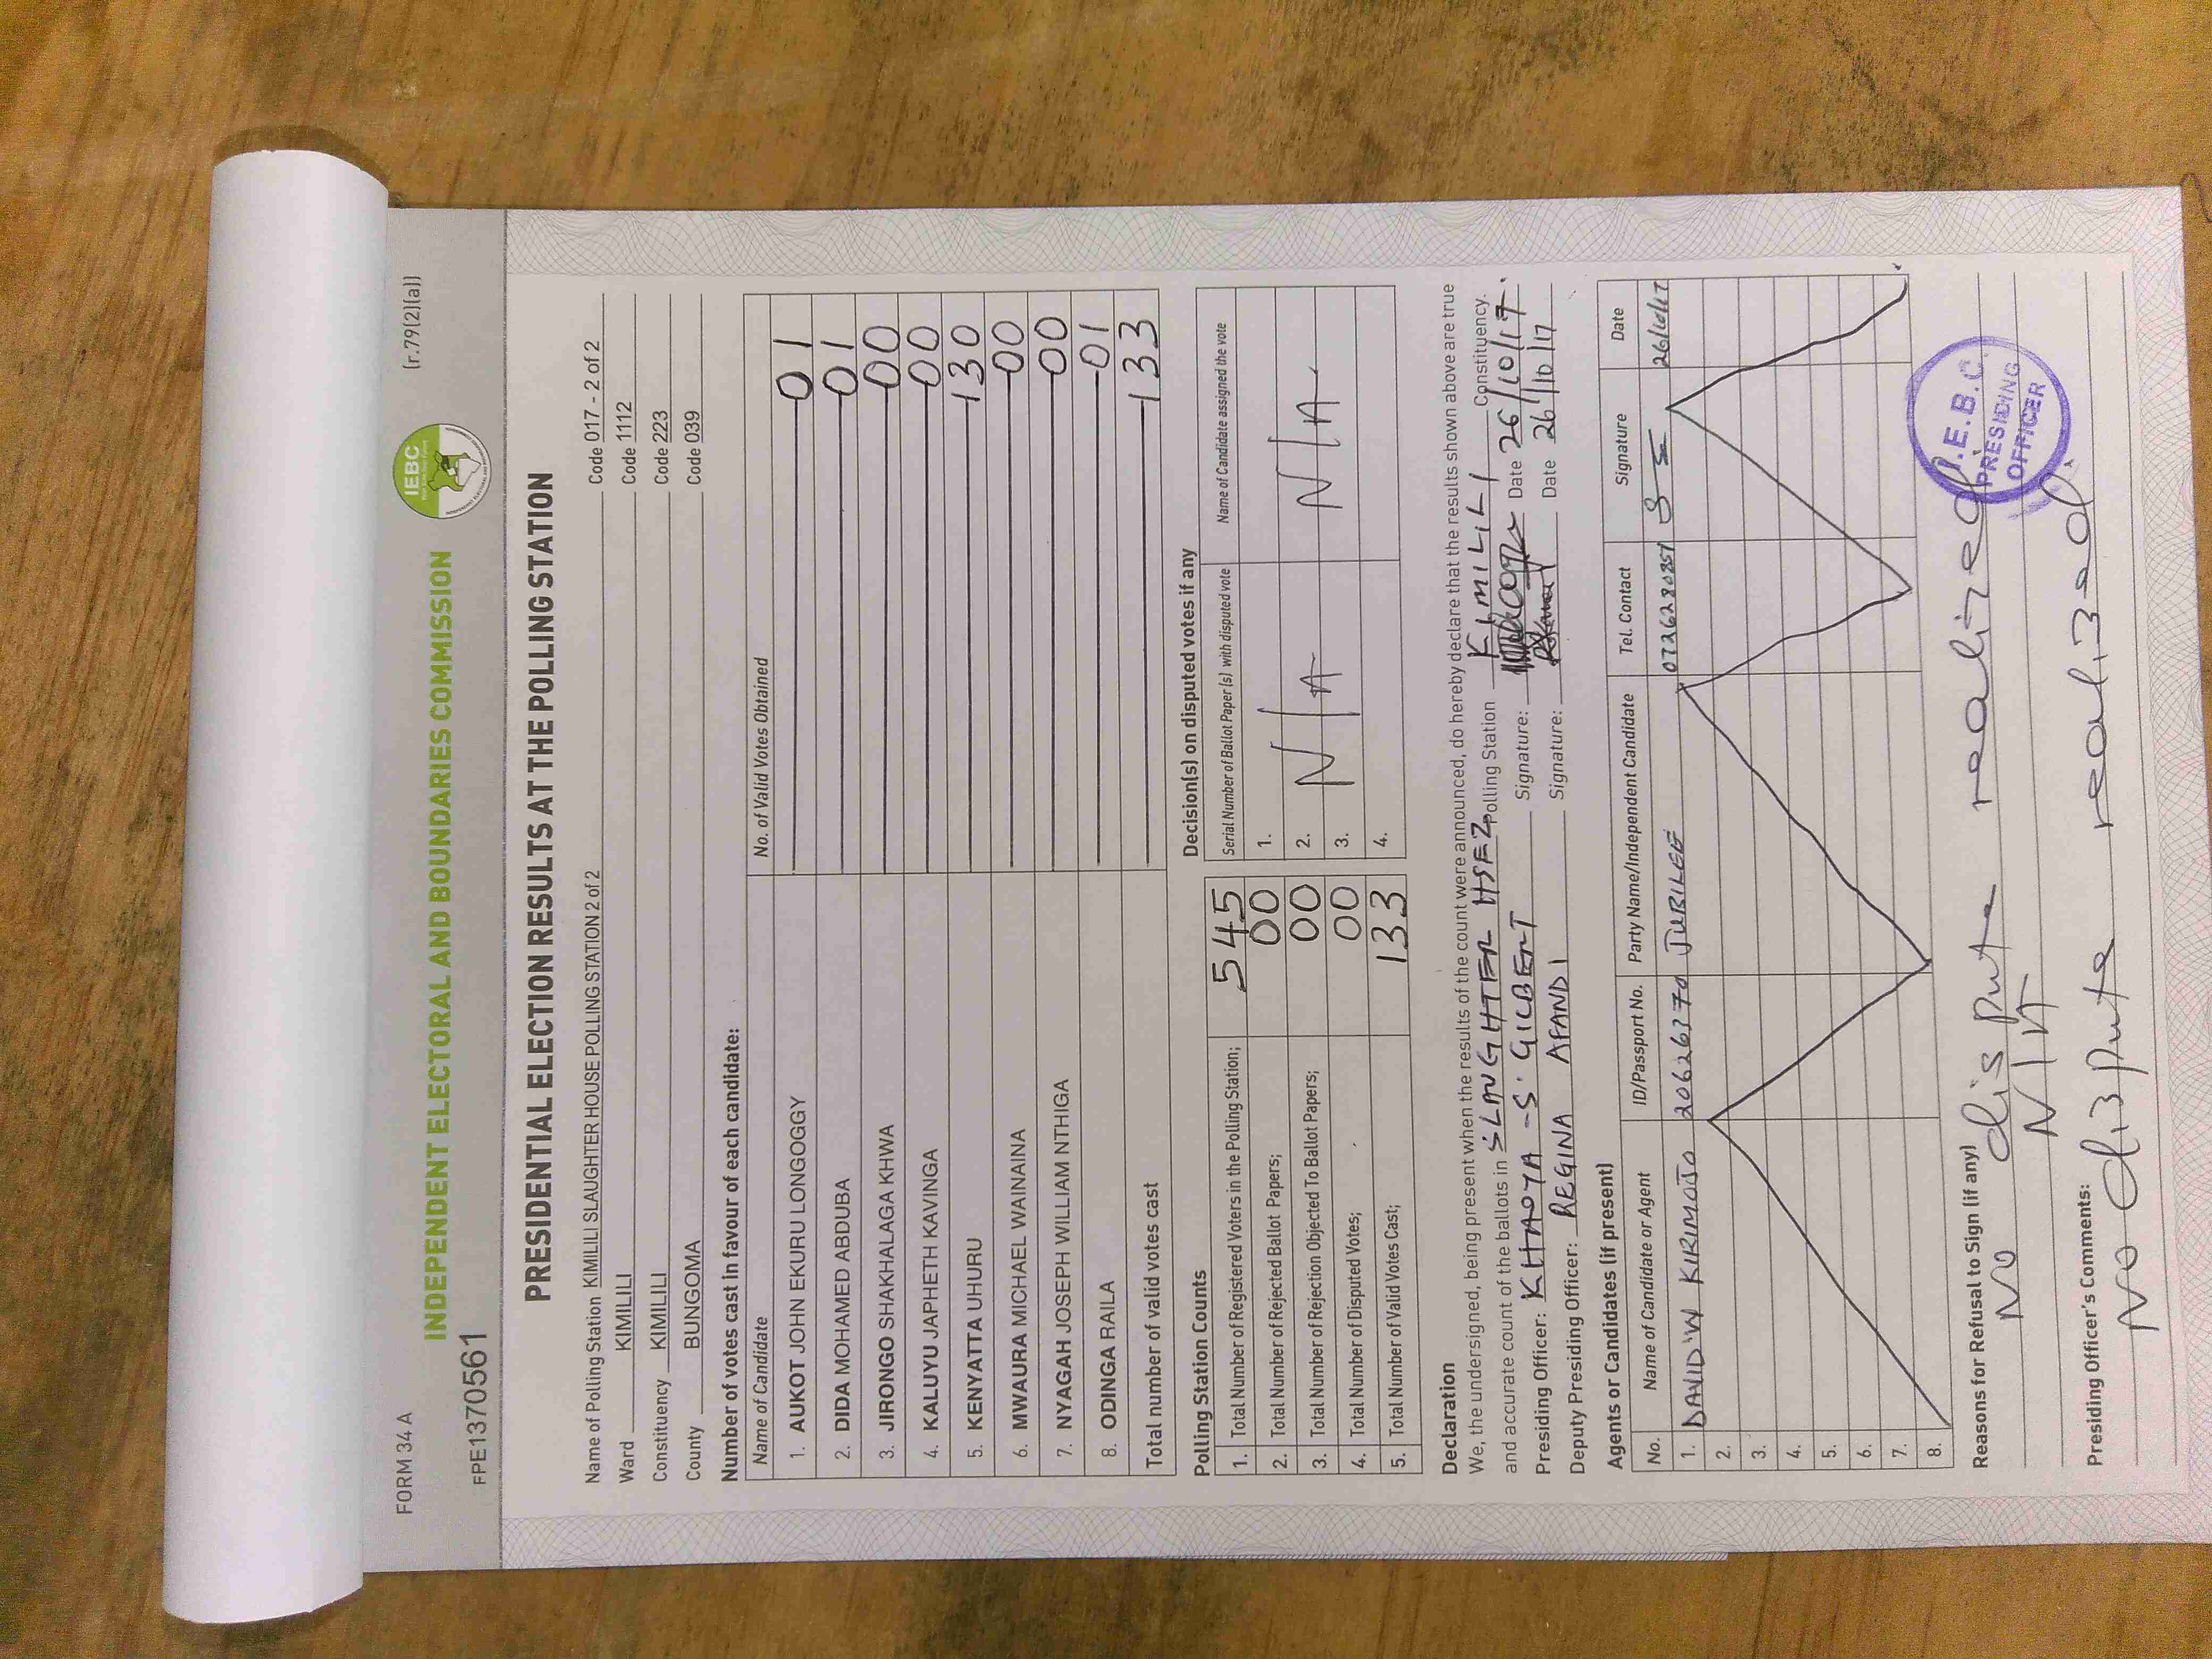 FORM 34 A
(r.79(2)(a))
IEBC
INDEPENDENT ELECTORAL AND BOUNDARIES COMMISSION
FPE1370561
PRESIDENTIAL ELECTION RESULTS AT THE POLLING STATION
Name of Polling Station KIMILILI SLAUGHTER HOUSE POLLING STATION 2 of 2 Code 017 - 2 of 2
Ward KIMILILI Code 1112
Constituency KIMILILI Code 223
County BUNGOMA Code 039
Number of votes cast in favour of each candidate:
Name of Candidate No. of Valid Votes Obtained
1. AUKOT JOHN EKURU LONGOGGY 01
2. DIDA MOHAMED ABDUBA 01
3. JIRONGO SHAKHALAGA KHWA 00
4. KALUYU JAPHETH KAVINGA 00
5. KENYATTA UHURU 130
6. MWAURA MICHAEL WAINAINA 00
7. NYAGAH JOSEPH WILLIAM NTHIGA 00
8. ODINGA RAILA 01
Total number of valid votes cast 133
Polling Station Counts
1. Total Number of Registered Voters in the Polling Station; 545
2. Total Number of Rejected Ballot Papers; 00
3. Total Number of Rejection Objected To Ballot Papers; 00
4. Total Number of Disputed Votes; 00
5. Total Number of Valid Votes Cast; 133
Decision(s) on disputed votes if any
Serial Number of Ballot Paper (s) with disputed vote Name of Candidate assigned the vote
1.
2. N/A N/A
3.
4.
Declaration
We, the undersigned, being present when the results of the count were announced, do hereby declare that the results shown above are true
and accurate count of the ballots in SLAUGHTER HSE 2 Polling Station KIMILILI Constituency.
Presiding Officer: KHAOYA -S. GILBERT Signature: Date 26/10/17.
Deputy Presiding Officer: REGINA AFANDI Signature: Date 26/10/17
Agents or Candidates (if present)
No. Name of Candidate or Agent ID/Passport No. Party Name/Independent Candidate Tel. Contact Signature Date
1. DAVID W KIRIMOJO 20626370 JUBILEE 0726280257 26/10/17
2.
3.
4.
5.
6.
7.
8.
Reasons for Refusal to Sign (if any)
No dispute realized.
N/A
I.E.B.C.
PRESIDING
OFFICER
Presiding Officer's Comments:
No dispute realized.